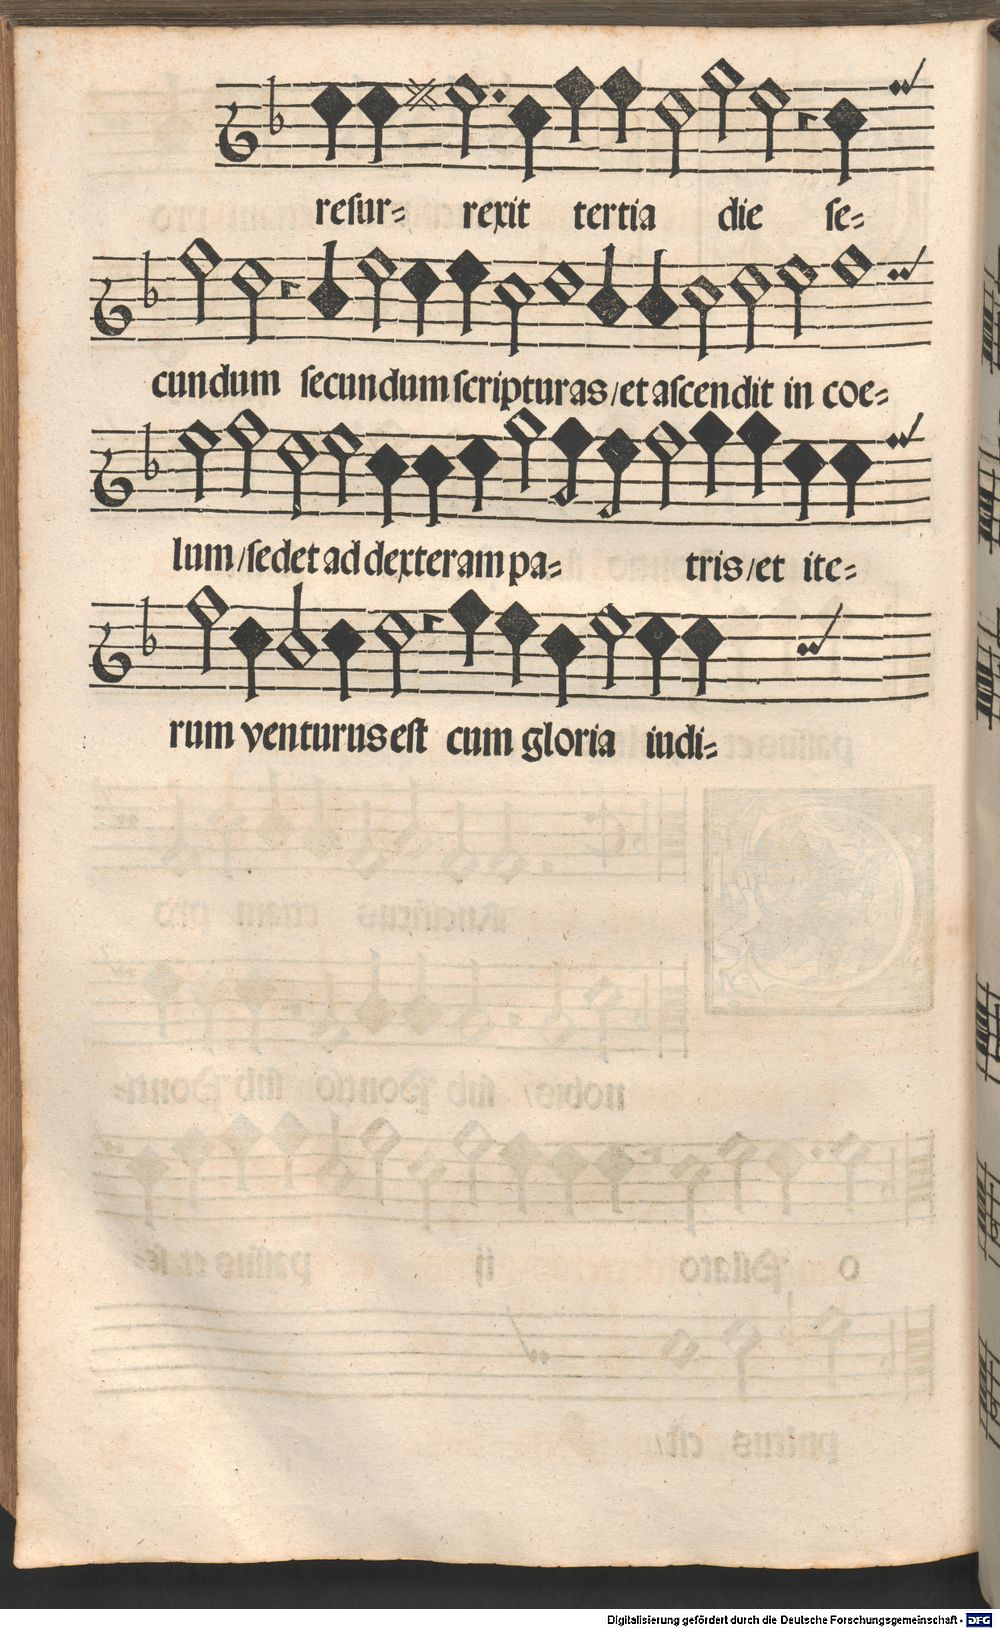 reſur⸗ rexit tertia die ſe⸗
cundum ſecundum ſcripturas/et aſcendit in coe⸗
lum/ſedet ad dexteram pa⸗ tris/et ite⸗
rum venturus eſt cum gloria iudi⸗
Digitalisierung gefördert durch die Deutsche Forschungsgemeinschaft - DFG